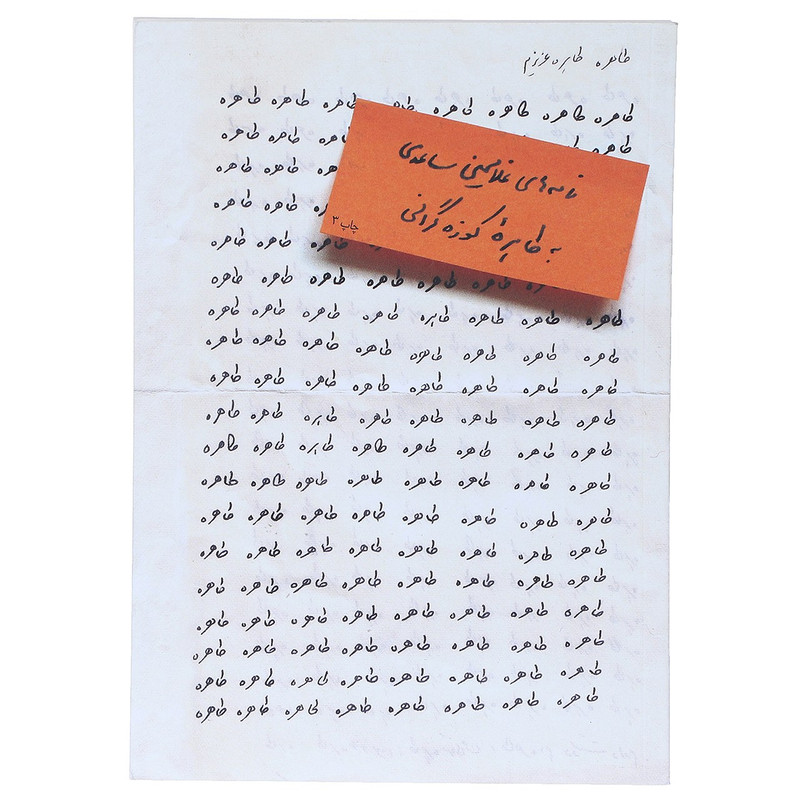 طاهره طاهره عزیزم
نامه‌های غلامحسین ساعدی
به طاهرهٔ کوزه‌گرانی
چاپ ۳
طاهره طاهره طاهره طاهره طاهره طاهره طاهره طاهره
طاهره طاهره طاهره
طاهره طاهره
طاهره طاهره
طاهره طاهره
طاهره طاهره طاهره طاهره طاهره طاهره
طاهره طاهره طاهره طاهره طاهره طاهره طاهره طاهره
طاهره طاهره طاهره طاهره طاهره طاهره طاهره طاهره
طاهره طاهره طاهره طاهره طاهره طاهره طاهره طاهره
طاهره طاهره طاهره طاهره طاهره طاهره طاهره طاهره
طاهره طاهره طاهره طاهره طاهره طاهره طاهره طاهره
طاهره طاهره طاهره طاهره طاهره طاهره طاهره طاهره
طاهره طاهره طاهره طاهره طاهره طاهره طاهره طاهره
طاهره طاهره طاهره طاهره طاهره طاهره طاهره طاهره
طاهره طاهره طاهره طاهره طاهره طاهره طاهره طاهره
طاهره طاهره طاهره طاهره طاهره طاهره طاهره طاهره
طاهره طاهره طاهره طاهره طاهره طاهره طاهره طاهره
طاهره طاهره طاهره طاهره طاهره طاهره طاهره طاهره
طاهره طاهره طاهره طاهره طاهره طاهره طاهره طاهره